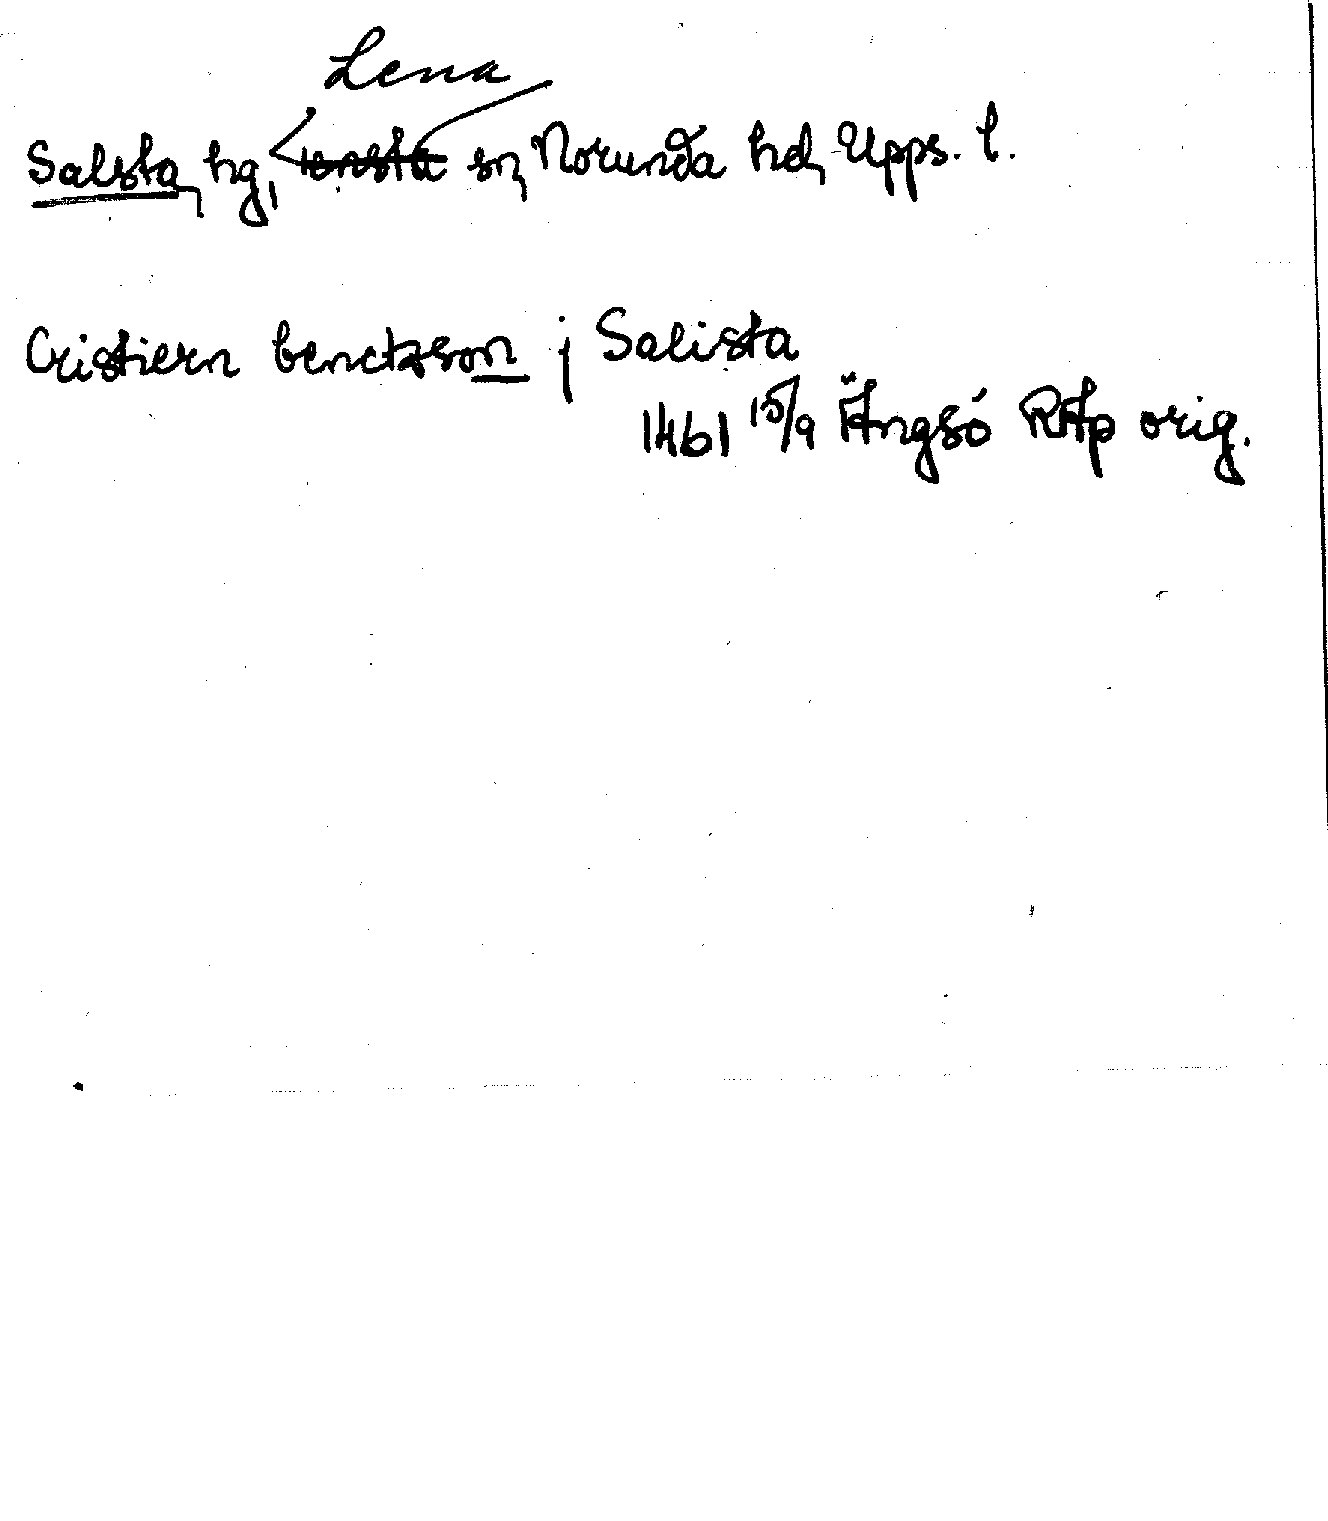 Lena
Salsta, hg, sn, Norunda hd, Upps. l.
Cristiern benctzson j Salista
1461 15/9 Ängsö RAp orig.